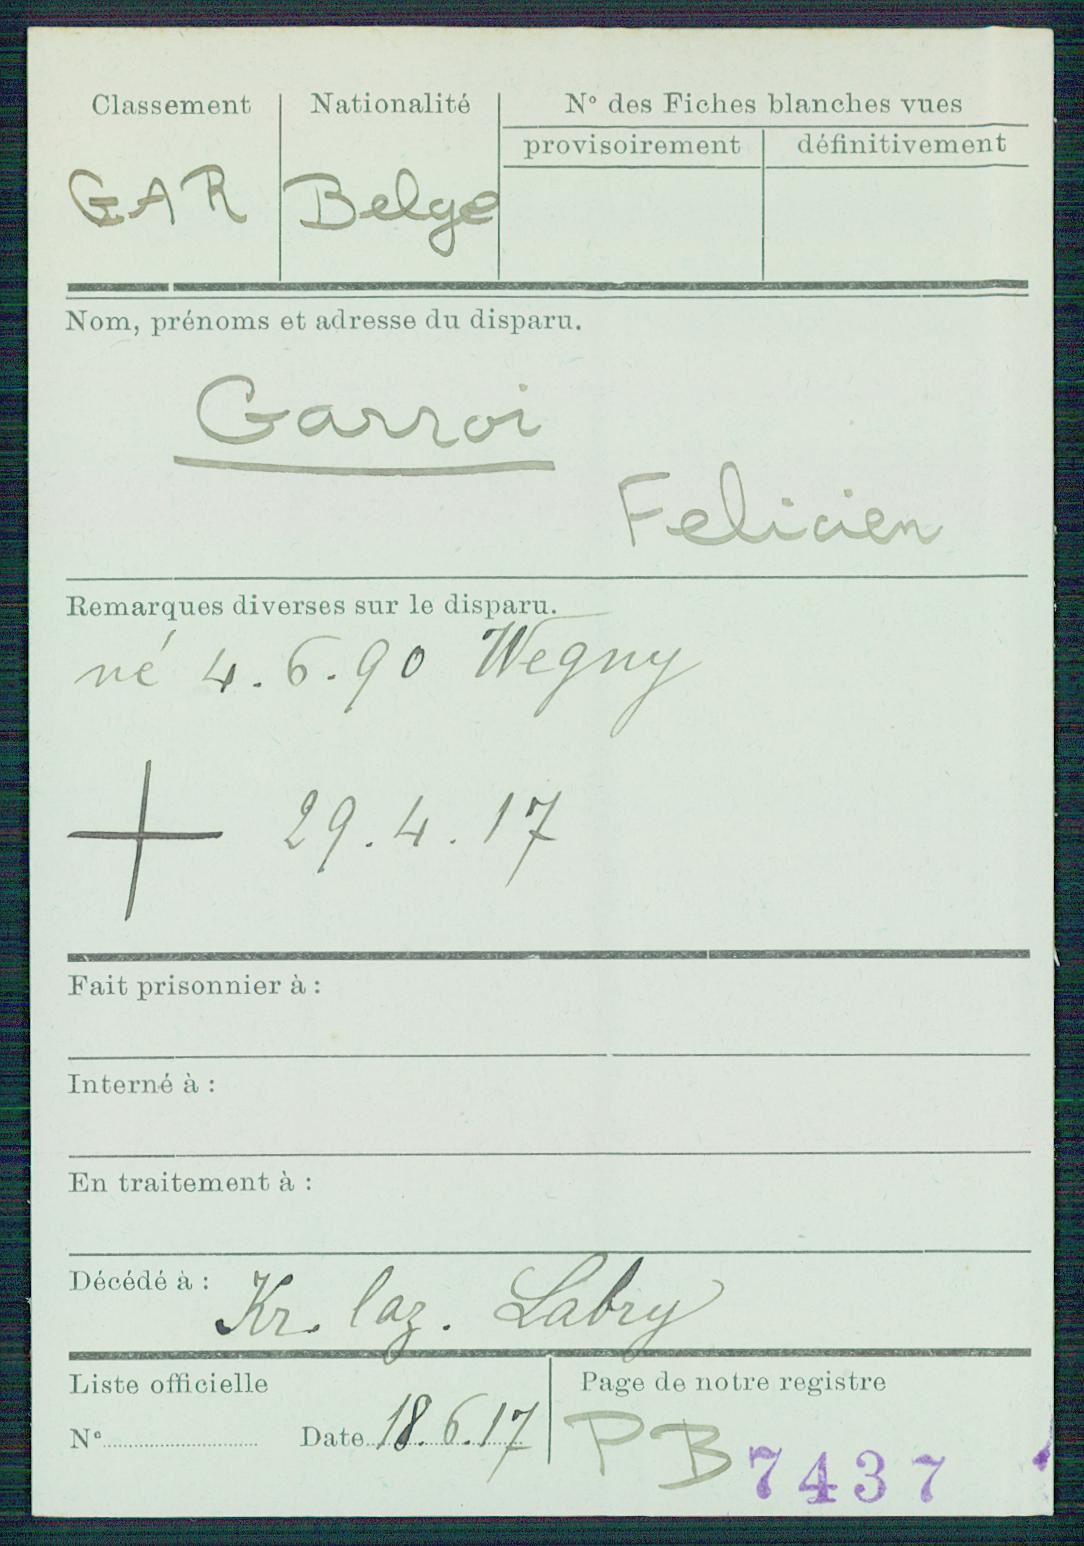 Classement Nationalité N° des Fiches blanches vues
provisoirement définitivement
GAR Belge
Nom, prénoms et adresse du disparu.
Garroi
Felicien
Remarques diverses sur le disparu.
né 4.6.90 Wegny
+ 29.4.17
Fait prisonnier à :
Interné à :
En traitement à :
Décédé à : Kr. laz. Labry
Liste officielle Page de notre registre
N° Date 18.6.17 PB 7437